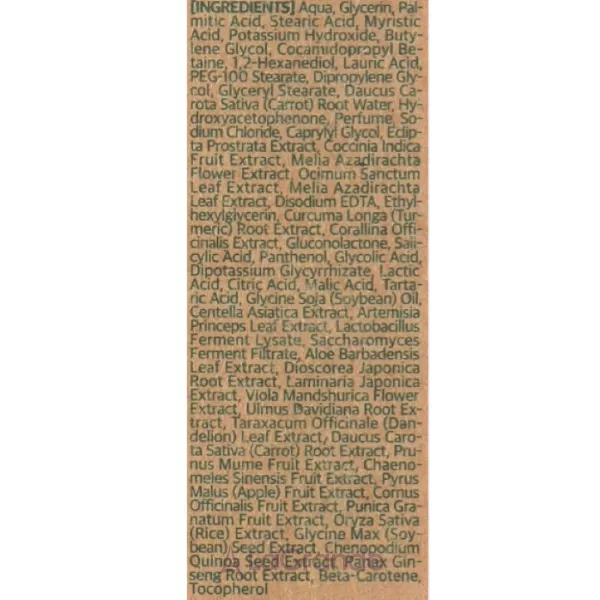 [INGREDIENTS] Aqua, Glycerin, Pal-
mitic Acid, Stearic Acid, Myristic
Acid, Potassium Hydroxide, Buty-
lene Glycol, Cocamidopropyl Be-
taine, 1,2-Hexanediol, Lauric Acid,
PEG-100 Stearate, Dipropylene Gly-
col, Glyceryl Stearate, Daucus Ca-
rota Sativa (Carrot) Root Water, Hy-
droxyacetophenone, Perfume, So-
dium Chloride, Caprylyl Glycol, Eclip-
ta Prostrata Extract, Coccinia Indica
Fruit Extract, Melia Azadirachta
Flower Extract, Ocimum Sanctum
Leaf Extract, Melia Azadirachta
Leaf Extract, Disodium EDTA, Ethyl-
hexylglycerin, Curcuma Longa (Tur-
meric) Root Extract, Corallina Offi-
cinalis Extract, Gluconolactone, Sali-
cylic Acid, Panthenol, Glycolic Acid,
Dipotassium Glycyrrhizate, Lactic
Acid, Citric Acid, Malic Acid, Tarta-
ric Acid, Glycine Soja (Soybean) Oil,
Centella Asiatica Extract, Artemisia
Princeps Leaf Extract, Lactobacillus
Ferment Lysate, Saccharomyces
Ferment Filtrate, Aloe Barbadensis
Leaf Extract, Dioscorea Japonica
Root Extract, Laminaria Japonica
Extract, Viola Mandshurica Flower
Extract, Ulmus Davidiana Root Ex-
tract, Taraxacum Officinale (Dan-
delion) Leaf Extract, Daucus Caro-
ta Sativa (Carrot) Root Extract, Pru-
nus Mume Fruit Extract, Chaeno-
meles Sinensis Fruit Extract, Pyrus
Malus (Apple) Fruit Extract, Cornus
Officinalis Fruit Extract, Punica Gra-
natum Fruit Extract, Oryza Sativa
(Rice) Extract, Glycine Max (Soy-
bean) Seed Extract, Chenopodium
Quinoa Seed Extract, Panax Gin-
seng Root Extract, Beta-Carotene,
Tocopherol